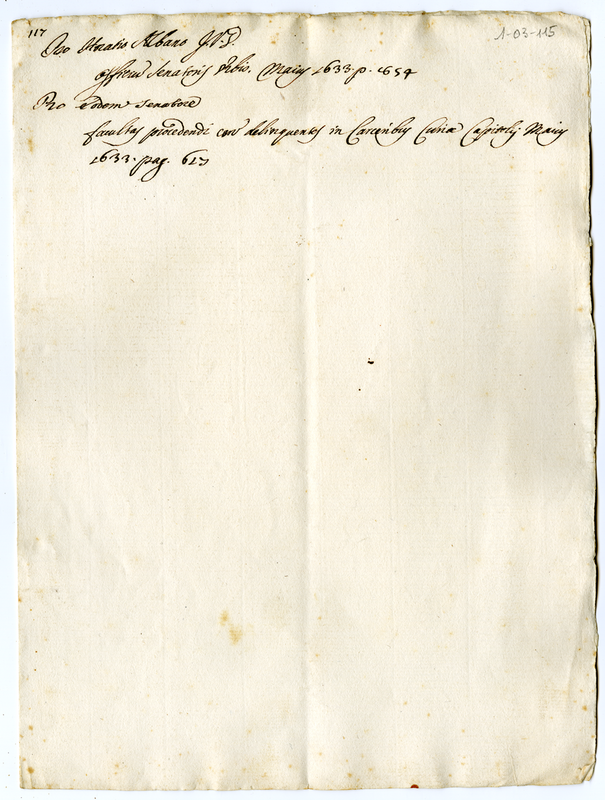 117
1-03-115
Pro Horatio Albano J.V.D.
offitiu Senatoris Urbis. Maius 1633. p. 1654
Pro Eodem Senatore
facultas procedendi con delinquentes in Carceribus Curia Capitolij Maius
1633. pag. 617